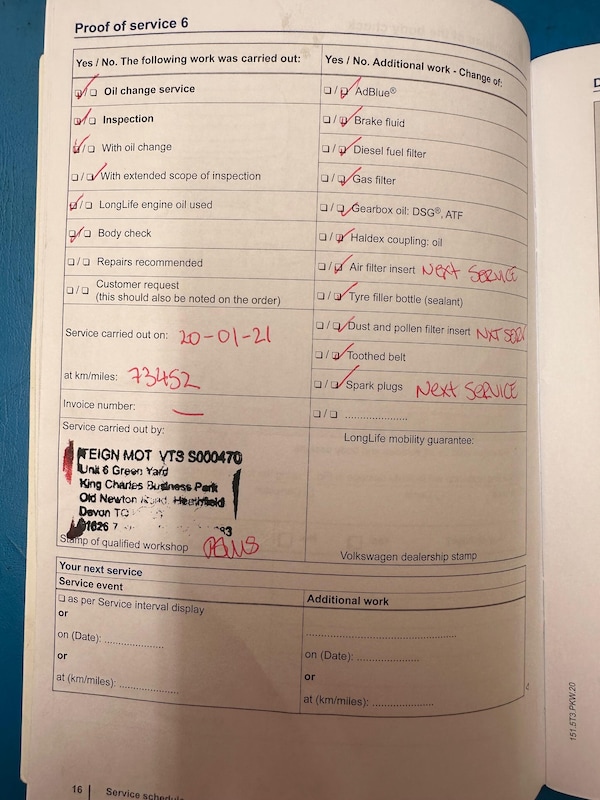 Proof of service 6
Yes / No. The following work was carried out:
Oil change service
Inspection
With oil change
With extended scope of inspection
LongLife engine oil used
Body check
Repairs recommended
Customer request
(this should also be noted on the order)
Service carried out on: 20-01-21
at km/miles: 73452
Invoice number: —
Service carried out by:
TEIGN MOT VTS S000470
Unit 6 Green Yard
King Charles Business Park
Old Newton Road, Heathfield
Devon
Stamp of qualified workshop
Yes / No. Additional work - Change of:
AdBlue®
Brake fluid
Diesel fuel filter
Gas filter
Gearbox oil: DSG®, ATF
Haldex coupling: oil
Air filter insert NEXT SERVICE
Tyre filler bottle (sealant)
Dust and pollen filter insert NXT SERV
Toothed belt
Spark plugs NEXT SERVICE
....................
LongLife mobility guarantee:
Volkswagen dealership stamp
Your next service
Service event
as per Service interval display
or
on (Date): ....................
or
at (km/miles): ....................
Additional work
..................................................
on (Date): ....................
or
at (km/miles): ....................
16 Service schedul
151.5T3.PKW.20
D